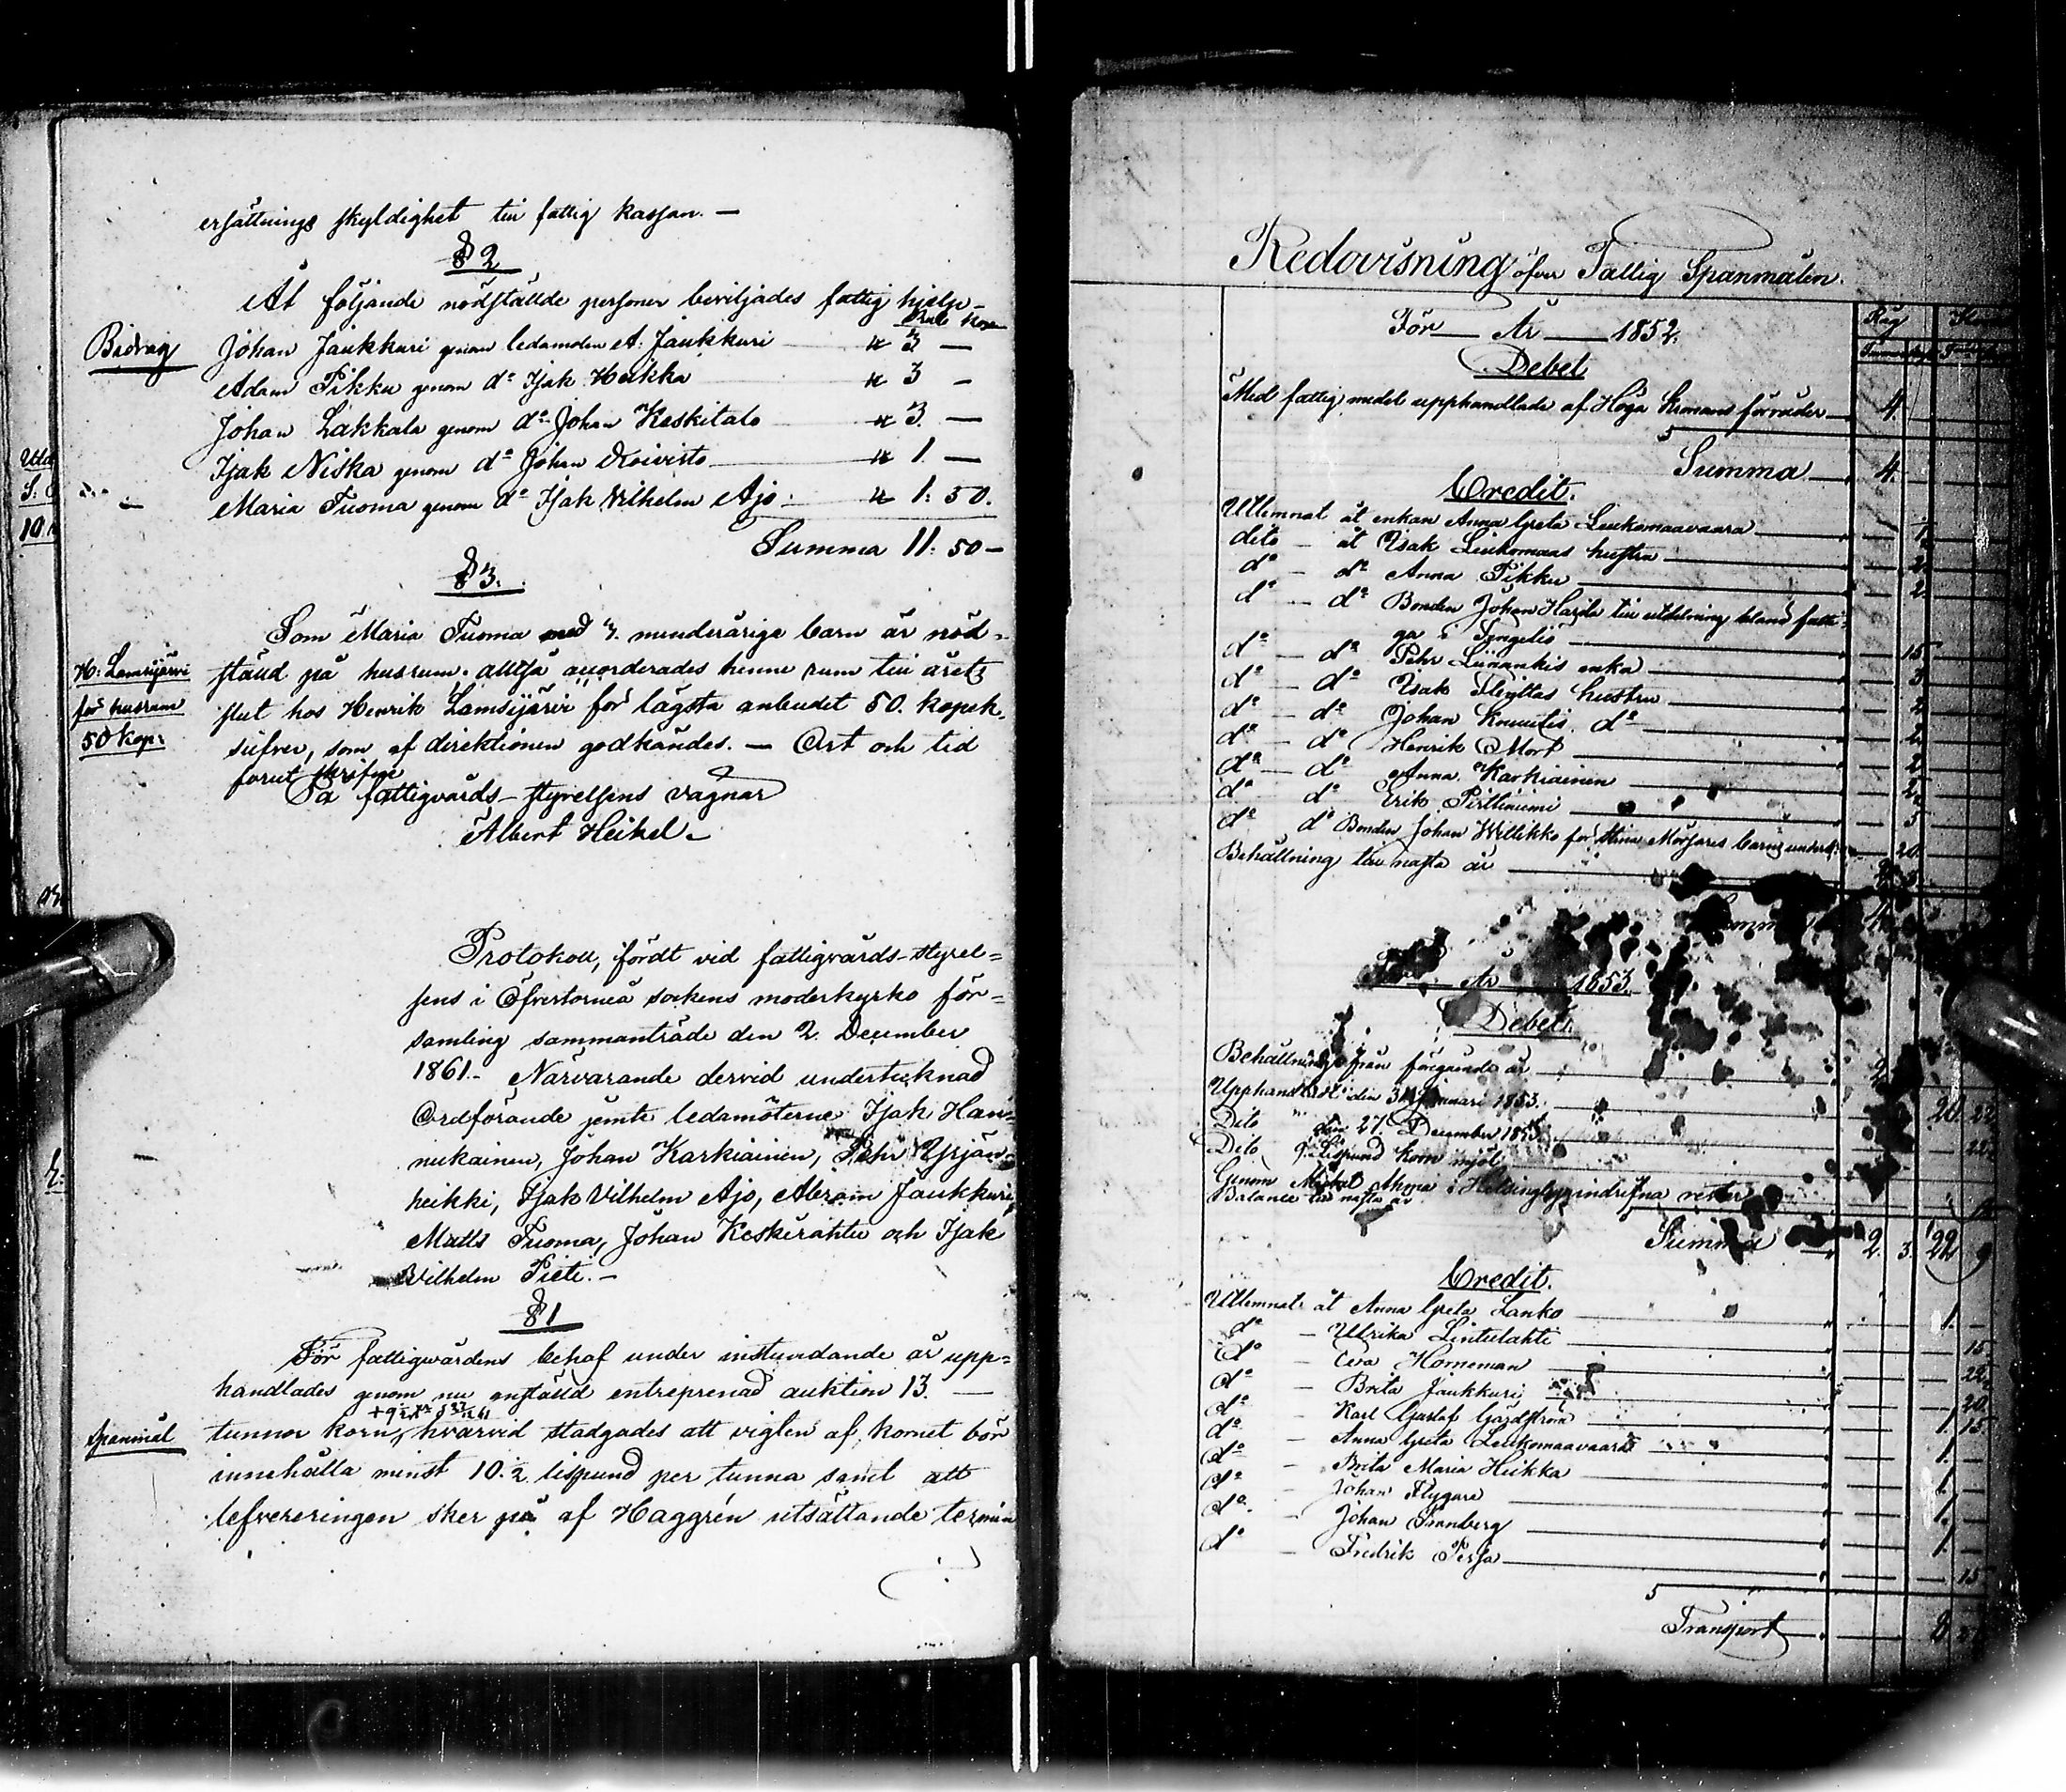 ersättnings skyldighet till fattig kassan. —
§ 2
Åt följande nödstälde personer beviljades fattig hjelp.
Rub. kop.
Bidrag
Johan Jaukkuri genom ledamoten A. Jaukkuri — " 3 —
Adam Pikku genom do Isak Heikka " 3 —
Johan Lakkala genom do Johan Keskitalo — " 3. —
Isak Niska genom do Johan Koivisto — " 1. —
Maria Tuoma genom do Isak Vilhelm Ajo: — " 1: 50.
Summa 11: 50 —
§ 3.
Som Maria Tuoma med 3. minderåriga barn är nöd-
H: Lamsijärvi
för husrum
50 kop:
stäld på husrum, alltså ackorderades henne rum till årets
slut hos Henrik Lamsijärvi för lägsta anbudet 50. kopek.
silfver, som af direktionen godkändes. — Ort och tid
förut skrifne
På fattigvårds-styrelsens vägnar
Albert Heikel.
Protokoll, fördt vid fattigvårds-styrel-
sens i Öfvertorneå sockens moderkyrko för-
samling sammanträde den 2. December
1861. — Närvarande dervid undertecknad
Ordförande jemte ledamöterne Isak Han-
nukainen, Johan Karkiainen, Pehr Yrjän-
heikki, Isak Vilhelm Ajo, Abram Jaukkuri,
Matts Tuoma, Johan Keskirahtu och Isak
Vilhelm Pieti. —
§ 1
För fattigvårdens behof under instundande år upp-
handlades genom nu anstäld entreprenad auktion 13. —
Spanmål
tunnor korn, hvarvid stadgades att vigten af kornet bör
innehålla minst 10.½ lispund per tunna samt att
lefvereringen sker på af Haggrén utsättande termin
Redovisning öfver Fattig Spanmålen.
För — År — 1852.
Råg
Debet
Med fattig medel upphandlade af Höga Kronans förråder — 4.
Summa — 4.
Credit.
Utlemnat åt enkan Anna Greta Liukomaavaara — 1.
dito — åt Isak Liukomaas hustru — 2.
do — do Anna Pikku — 2
do — do Bonden Johan Harila till utdelning bland fatti-
ga i Tengeliö — 15
do — do Pehr Liinankis enka — 3
do — do Isak Flyktas hustru — 2
do — do Johan Knuutis do — 2.
do — do Henrik Mort — 2
do — do Anna Karkiainen — 2.
do do Erik Pirttiniemi — 5
do do Bonden Johan Willikko for Stina Mörsaris barns underh. — 20.
Behållning till nästa år — 2. 3.
Summa 4.
År 1853.
Debet.
Behållning från föregående år — 2
Upphandladt den 31 Januari 1853. — 20. 22
Dito " den 27. December 185
Dito 9. Lispund korn mjöl
Genom Michel Ahma i Helsingby indrifna rester
Balance till nästa år
Summa — 2. 3. 22 9
Credit.
Utlemnat åt Anna Greta Lanko — 1. —
do — Ulrika Lintulahti — 15
do — Eva Horneman — 22½
do — Brita Jaukkuri — 20.
do — Karl Gustaf Gärdström — 1. 15
do — Anna Greta Liukomaavaara — 1. —
do — Brita Maria Heikka — 1 —
do — Johan Flygare — 1. —
do — Johan Granberg — 1. —
do — Fredrik Persa — 15
Transport —